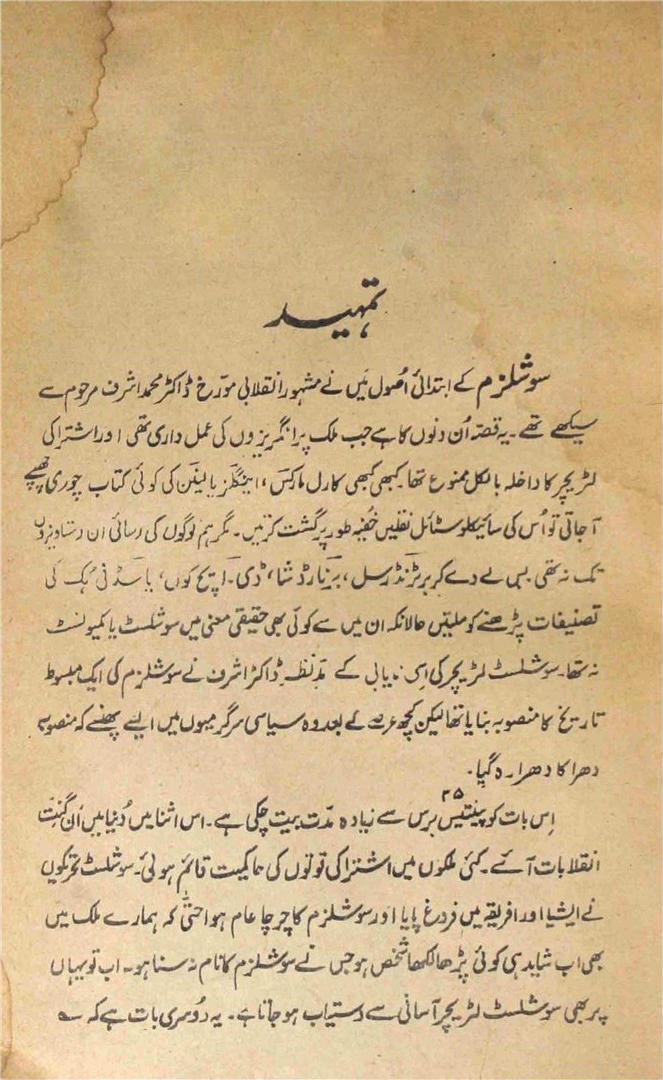 تمہید
سوشلزم کے ابتدائی اصُول میَں نے مشہور انقلابی مورّخ ڈاکٹر محمد اشرف مرحوم سے
سیکھے تھے ۔ یہ قصّہ اُن دنوں کا ہے جب ملک پر انگریزوں کی عمل داری تھی اور اشتراکی
لٹریچر کا داخلہ بالکل ممنوع تھا۔ کبھی کبھی کارل مارکس، اینگلز یا لینن کی کوئی کتاب چوری چھپے
آجاتی تو اُس کی سائیکلوسٹائل نقلیں خفیہ طور پر گشت کرتیں ۔ مگر ہم لوگوں کی رسائی ان دستاویزوں
تک نہ تھی بس لے دے کر برٹرنڈرسل، برنارڈ شا، ڈی۔ ایچ کول، یا سڈنی ہُک کی
تصنیفات پڑھنے کو ملتیں حالانکہ ان میں سے کوئی بھی حقیقی معنی میں سوشلسٹ یا کمیونسٹ
نہ تھا۔ سوشلسٹ لٹریچر کی اسی نایابی کے مدّنظر ڈاکٹر اشرف نے سوشلزم کی ایک مبسوط
تاریخ کا منصوبہ بنایا تھا لیکن کچھ عرصے کے بعد وہ سیاسی سرگرمیوں میں ایسے پھنسے کہ منصوبہ
دھرا کا دھرا رہ گیا ۔
۳۵
اِس بات کو پینتیس برس سے زیادہ مدّت بیت چکی ہے ۔ اس اثنا میں دُنیا میں اَن گِنت
انقلابات آئے ۔ کئی ملکوں میں اشتراکی قوتوں کی حاکمیت قائم ہوئی۔ سوشلسٹ تحریکوں
نے ایشیا اور افریقہ میں فروغ پایا اور سوشلزم کا چرچا عام ہوا حتّیٰ کہ ہمارے ملک میں
بھی اب شاید ہی کوئی پڑھا لکھا شخص ہو جس نے سوشلزم کا نام نہ سنا ہو ۔ اب تو یہاں
پر بھی سوشلسٹ لٹریچر آسانی سے دستیاب ہو جاتا ہے ۔ یہ دُوسری بات ہے کہ